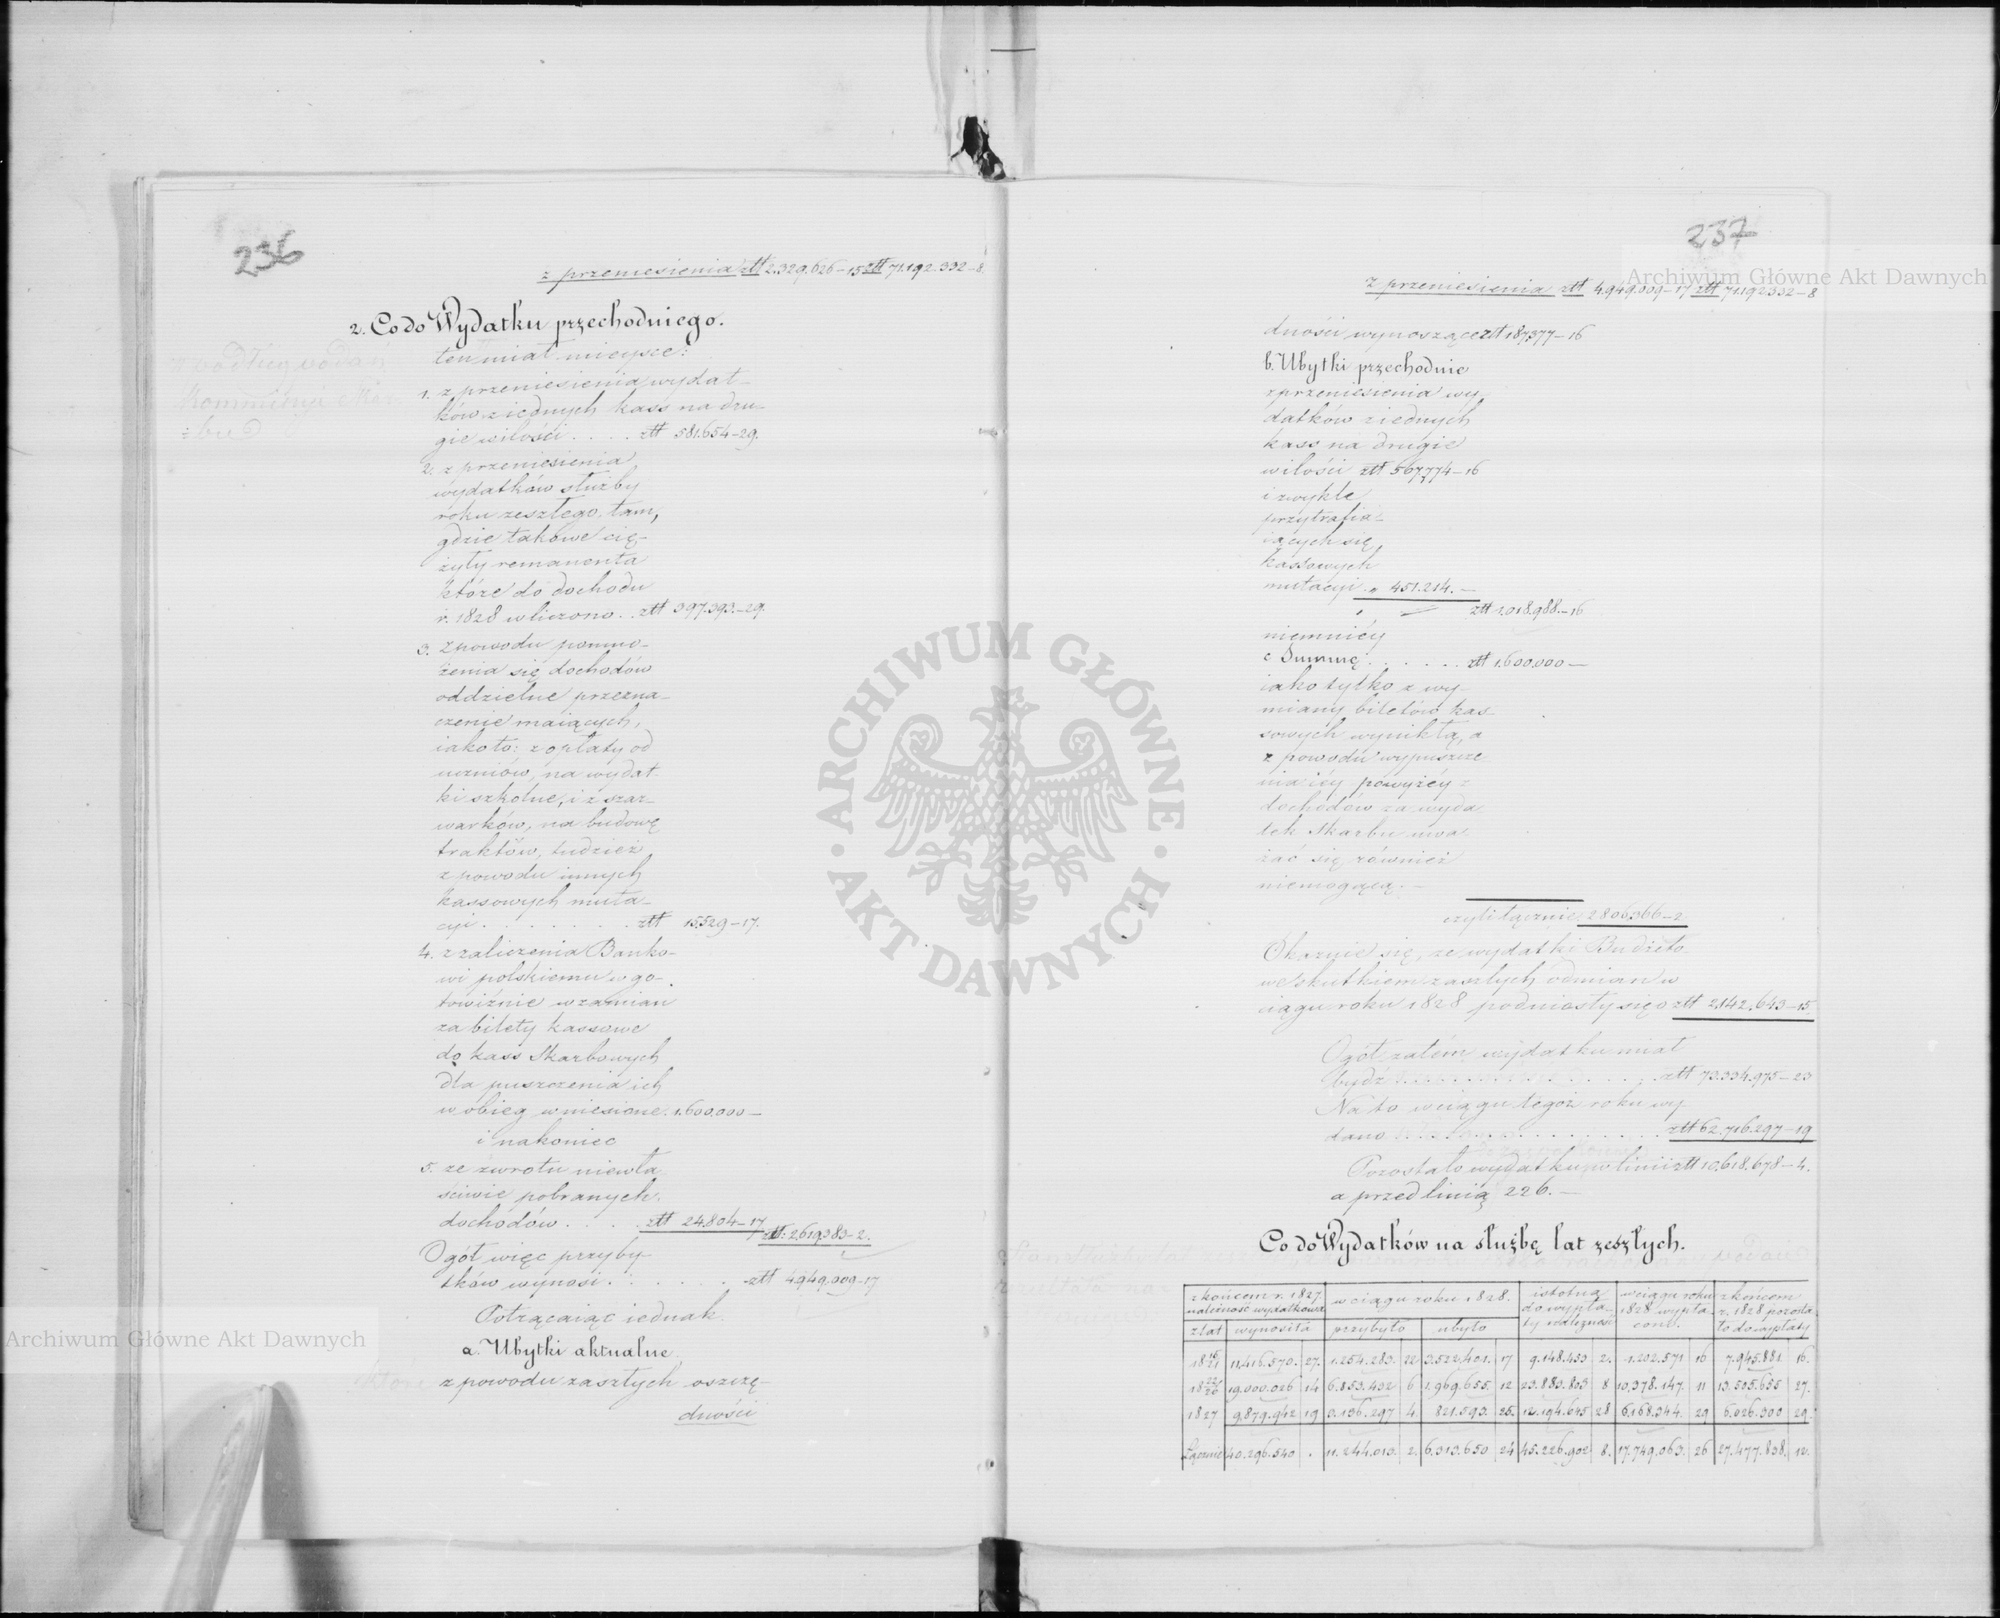 236
z przeniesienia złł 2.329.626–15 złł 71.192.332–8.
2. Co do Wydatku przechodniego.
ten miał mieysce:
1. z przeniesienia wydat-
ków z iednych kass na dru-
gie w ilości . . . . złł 581.654–29.
2. z przeniesienia
wydatków służby
roku zeszłego, tam,
gdzie takowe cię-
żyły remanenta
które do dochodu
r. 1828 wliczono . . złł 397.393.–29.
3. z powodu pomno-
żenia się dochodów
oddzielne przezna-
czenie maiących,
iako to: z opłaty od
uczniów, na wydat-
ki szkolne, i z szar-
warków, na budowę
traktów, tudzież
z powodu innych
kassowych muta-
cyi . . . . . . . złł 15.529–17.
4. z zaliczenia Banko-
wi polskiemu w go-
towiźnie w zamian
za bilety kassowe
do kass Skarbowych
dla puszczenia ich
w obieg wniesione. 1.600.000—
i nakoniec
5. ze zwrotu niewła-
ściwie pobranych
dochodów . . . . złł 24.804–17
złł: 2.619.383–2.
Ogół więc przyby-
tków wynosi . . . . . . . złł 4.949.009–17
Potrącaiąc iednak
a. Ubytki aktualne
z powodu zaszłych oszczę-
dności
237
z przeniesienia złł 4.949.009–17 złł 71.192.332–8
dności wynoszące złł 187.377–16
b. Ubytki przechodnie
z przeniesienia wy-
datków z iednych
kass na drugie
w ilości złł 567.774–16
i zwykle
przytrafia-
iących się
kassowych
mutacyi „ 451.214.—
złł 1.018.988.–16
niemniéy
c Summę . . . . . . złł 1.600.000—
iako tylko z wy-
miany biletów kas-
sowych wynikłą, a
z powodu wypuszcze-
nia iéy powyżéy z
dochodów za wyda-
tek Skarbu uwa-
żać się również
niemogącą.—
czyli łącznie 2.806.366–2
Okazuie się, że wydatki Budżeto-
we skutkiem zaszłych odmian w
ciągu roku 1828 podniosły się o złł 2.142.643–15.
Ogół zatém wydatku miał
bydź . . . . . . . . . . złł 73.334.975–23
Na to w ciągu tegoż roku wy-
dano . . . . . . . . . . złł 62.716.297–19
Pozostało wydatku po linii złł 10.618.678–4.
a przed linią 226.—
Co do Wydatków na służbę lat zeszłych.
z końcem r. 1827. należność wydatkowa w ciągu roku 1828. istotna do wypła-ty należność w ciągu roku 1828 wypła-cono. z końcem r. 1828 pozosta-ło do wypłaty
z lat wynosiła przybyło ubyło
18 15/21 11.416.570. 27. 1.254.283. 22 3.522.401. 17 9.148.453 2. 1.202.571 16 7.945.881 16.
18 22/26 19.000.026 14 6.853.432 6 1.969.655. 12 23.883.803 8 10.378.147. 11 13.505.655 27.
1827 9.879.942 19 3.136.297 4. 821.593. 25. 12.194.645 28 6.168.344. 29 6.026.300 29.
Łącznie 40.296.540 . 11.244.013. 2. 6.313.650 24 45.226.902 8. 17.749.063. 26 27.477.838. 12.
Archiwum Główne Akt Dawnych
ARCHIWUM GŁÓWNE · AKT DAWNYCH ·
Archiwum Główne Akt Dawnych